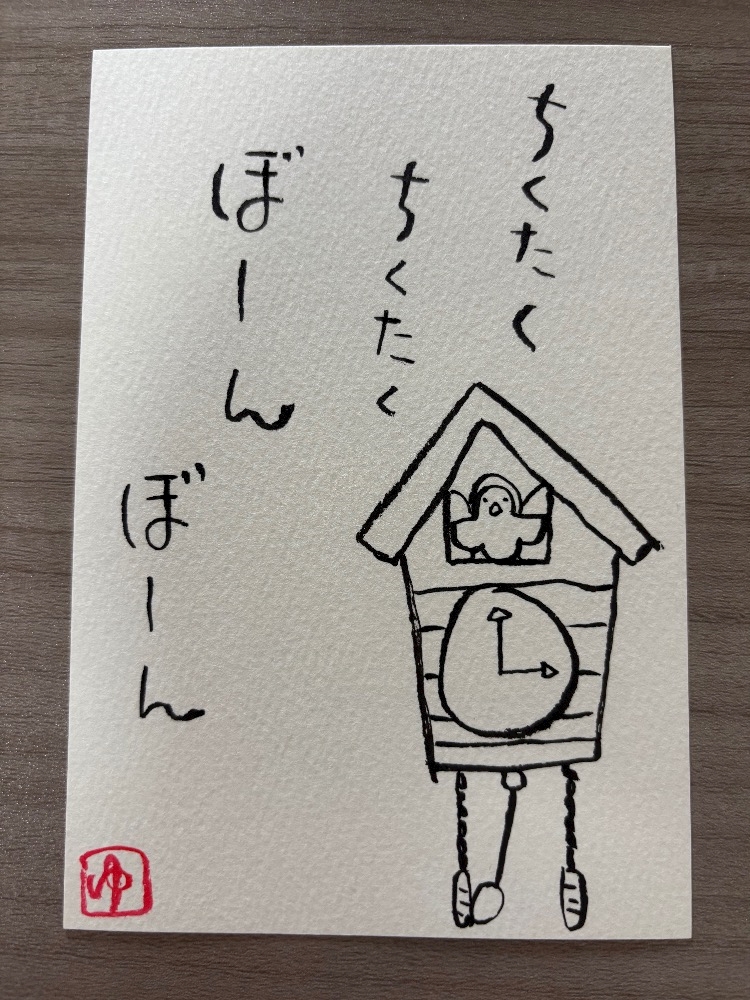 ちくたく
ちくたく
ぼーん
ぼーん
ゆ